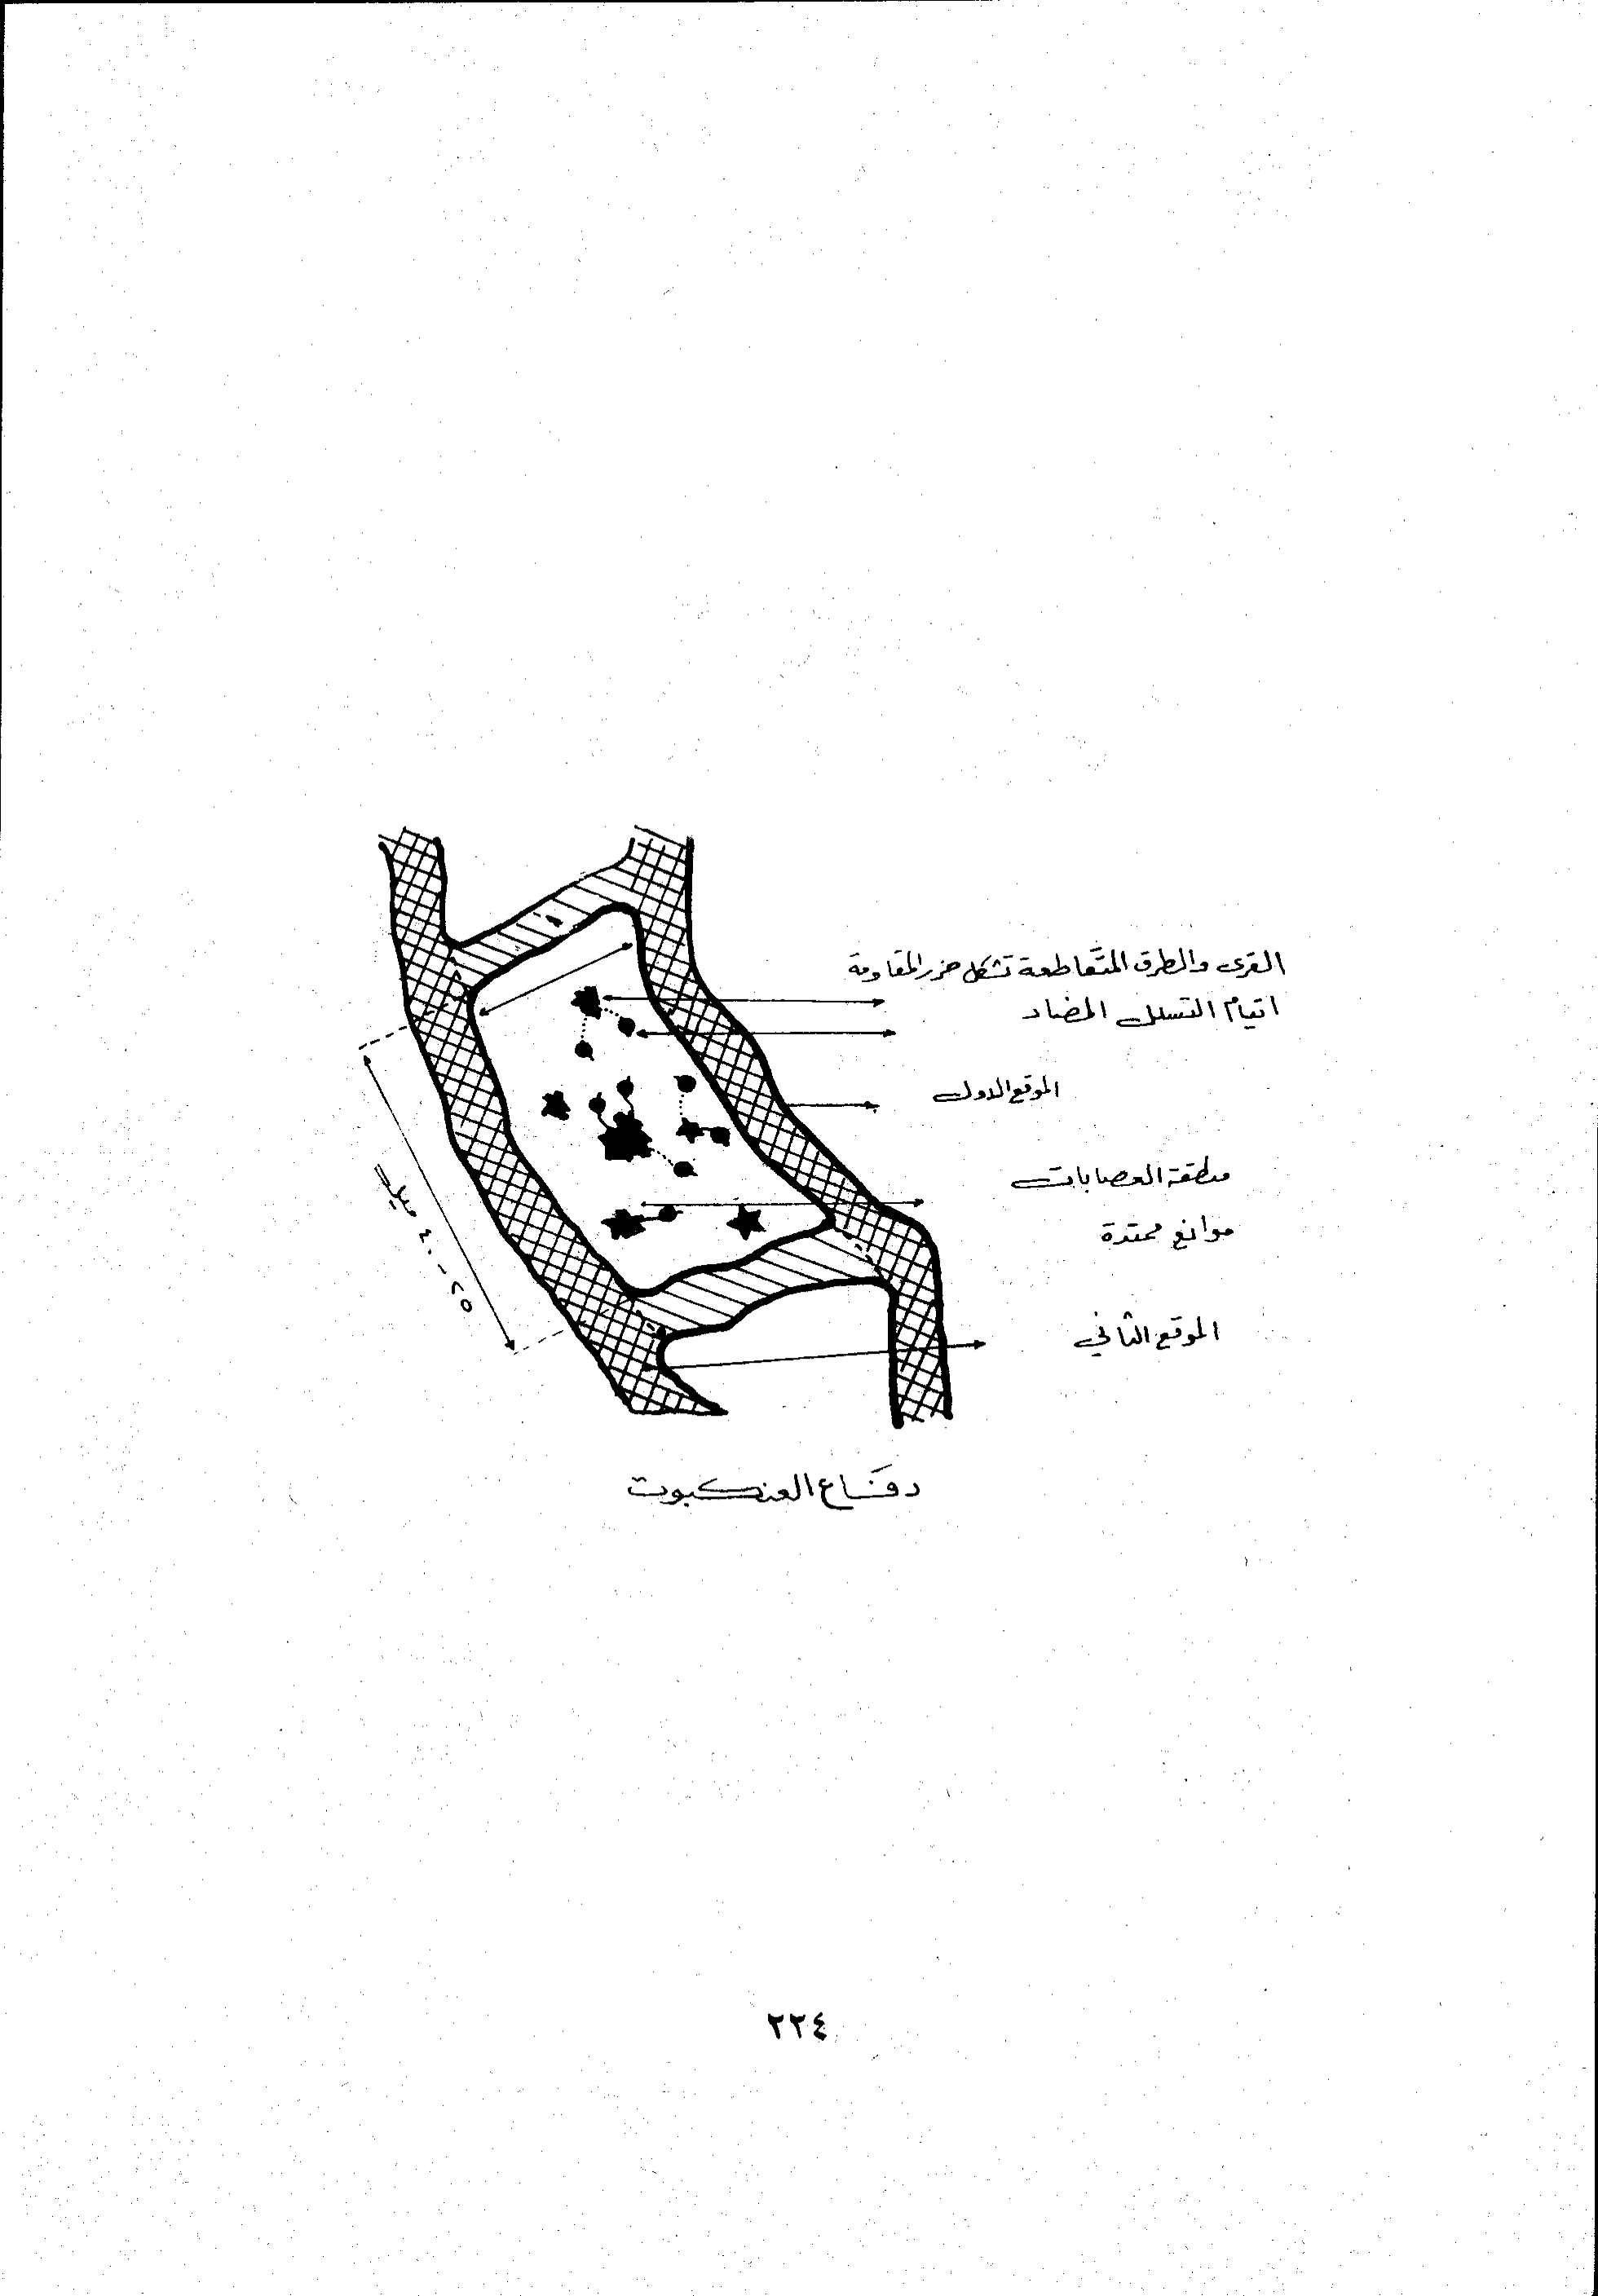 القرى والطرق المتقاطعة تشكل جزر المقاومة
التسلل المضاد
الموقع الاول
منطقة العصابات
موانع ممتدة
الموقع الثاني
٢٥ - ٤٠ ميل
دفاع العنكبوت
٢٢٤